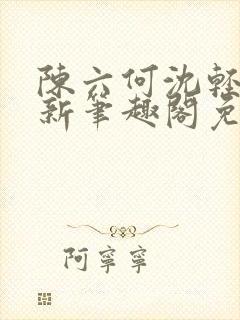 陳六何沈輕
新筆趣閣免
阿寧寧